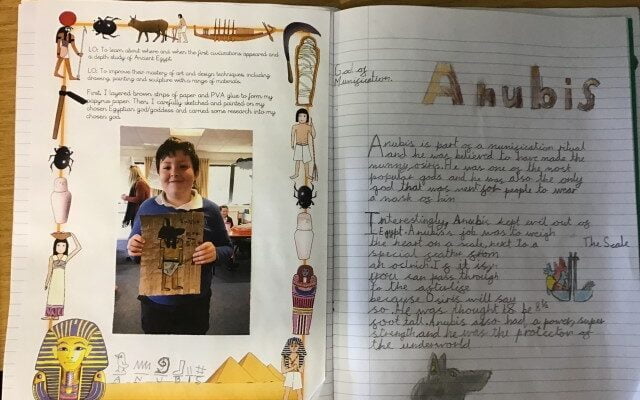 LO: To learn about where and when the first civilizations appeared and
a depth study of Ancient Egypt.
LO: To improve their mastery of art and design techniques including
drawing, painting and sculpture with a range of materials.
First, I layered brown strips of paper and PVA glue to form my
papyrus paper. Then, I carefully sketched and painted on my
chosen Egyptian god/goddess and carried some research into my
chosen god.
God of
Munification.
Anubis
Anubis is part of a munification ritual
and he was believed to have made the
mummy ossiris. He was one of the most
popular gods and he was also the only
god that was ment for people to wear
a mask of him
Interestingly, Anubis kept evil out of
Egypt. Anubis's job was to weigh
the heart on a scale, next to a
special feather from
an ostrich. If it
you can pass through
to the
because Osiris will say
so. He was thought to be
foot tall. Anubis also had a power, super
strength and he was the protector of
the underworld
The Scale